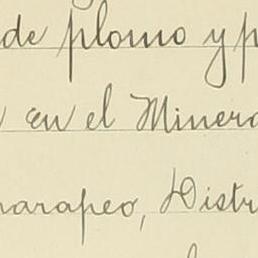 de plomo y p
en el Minera
arapeo, Distr